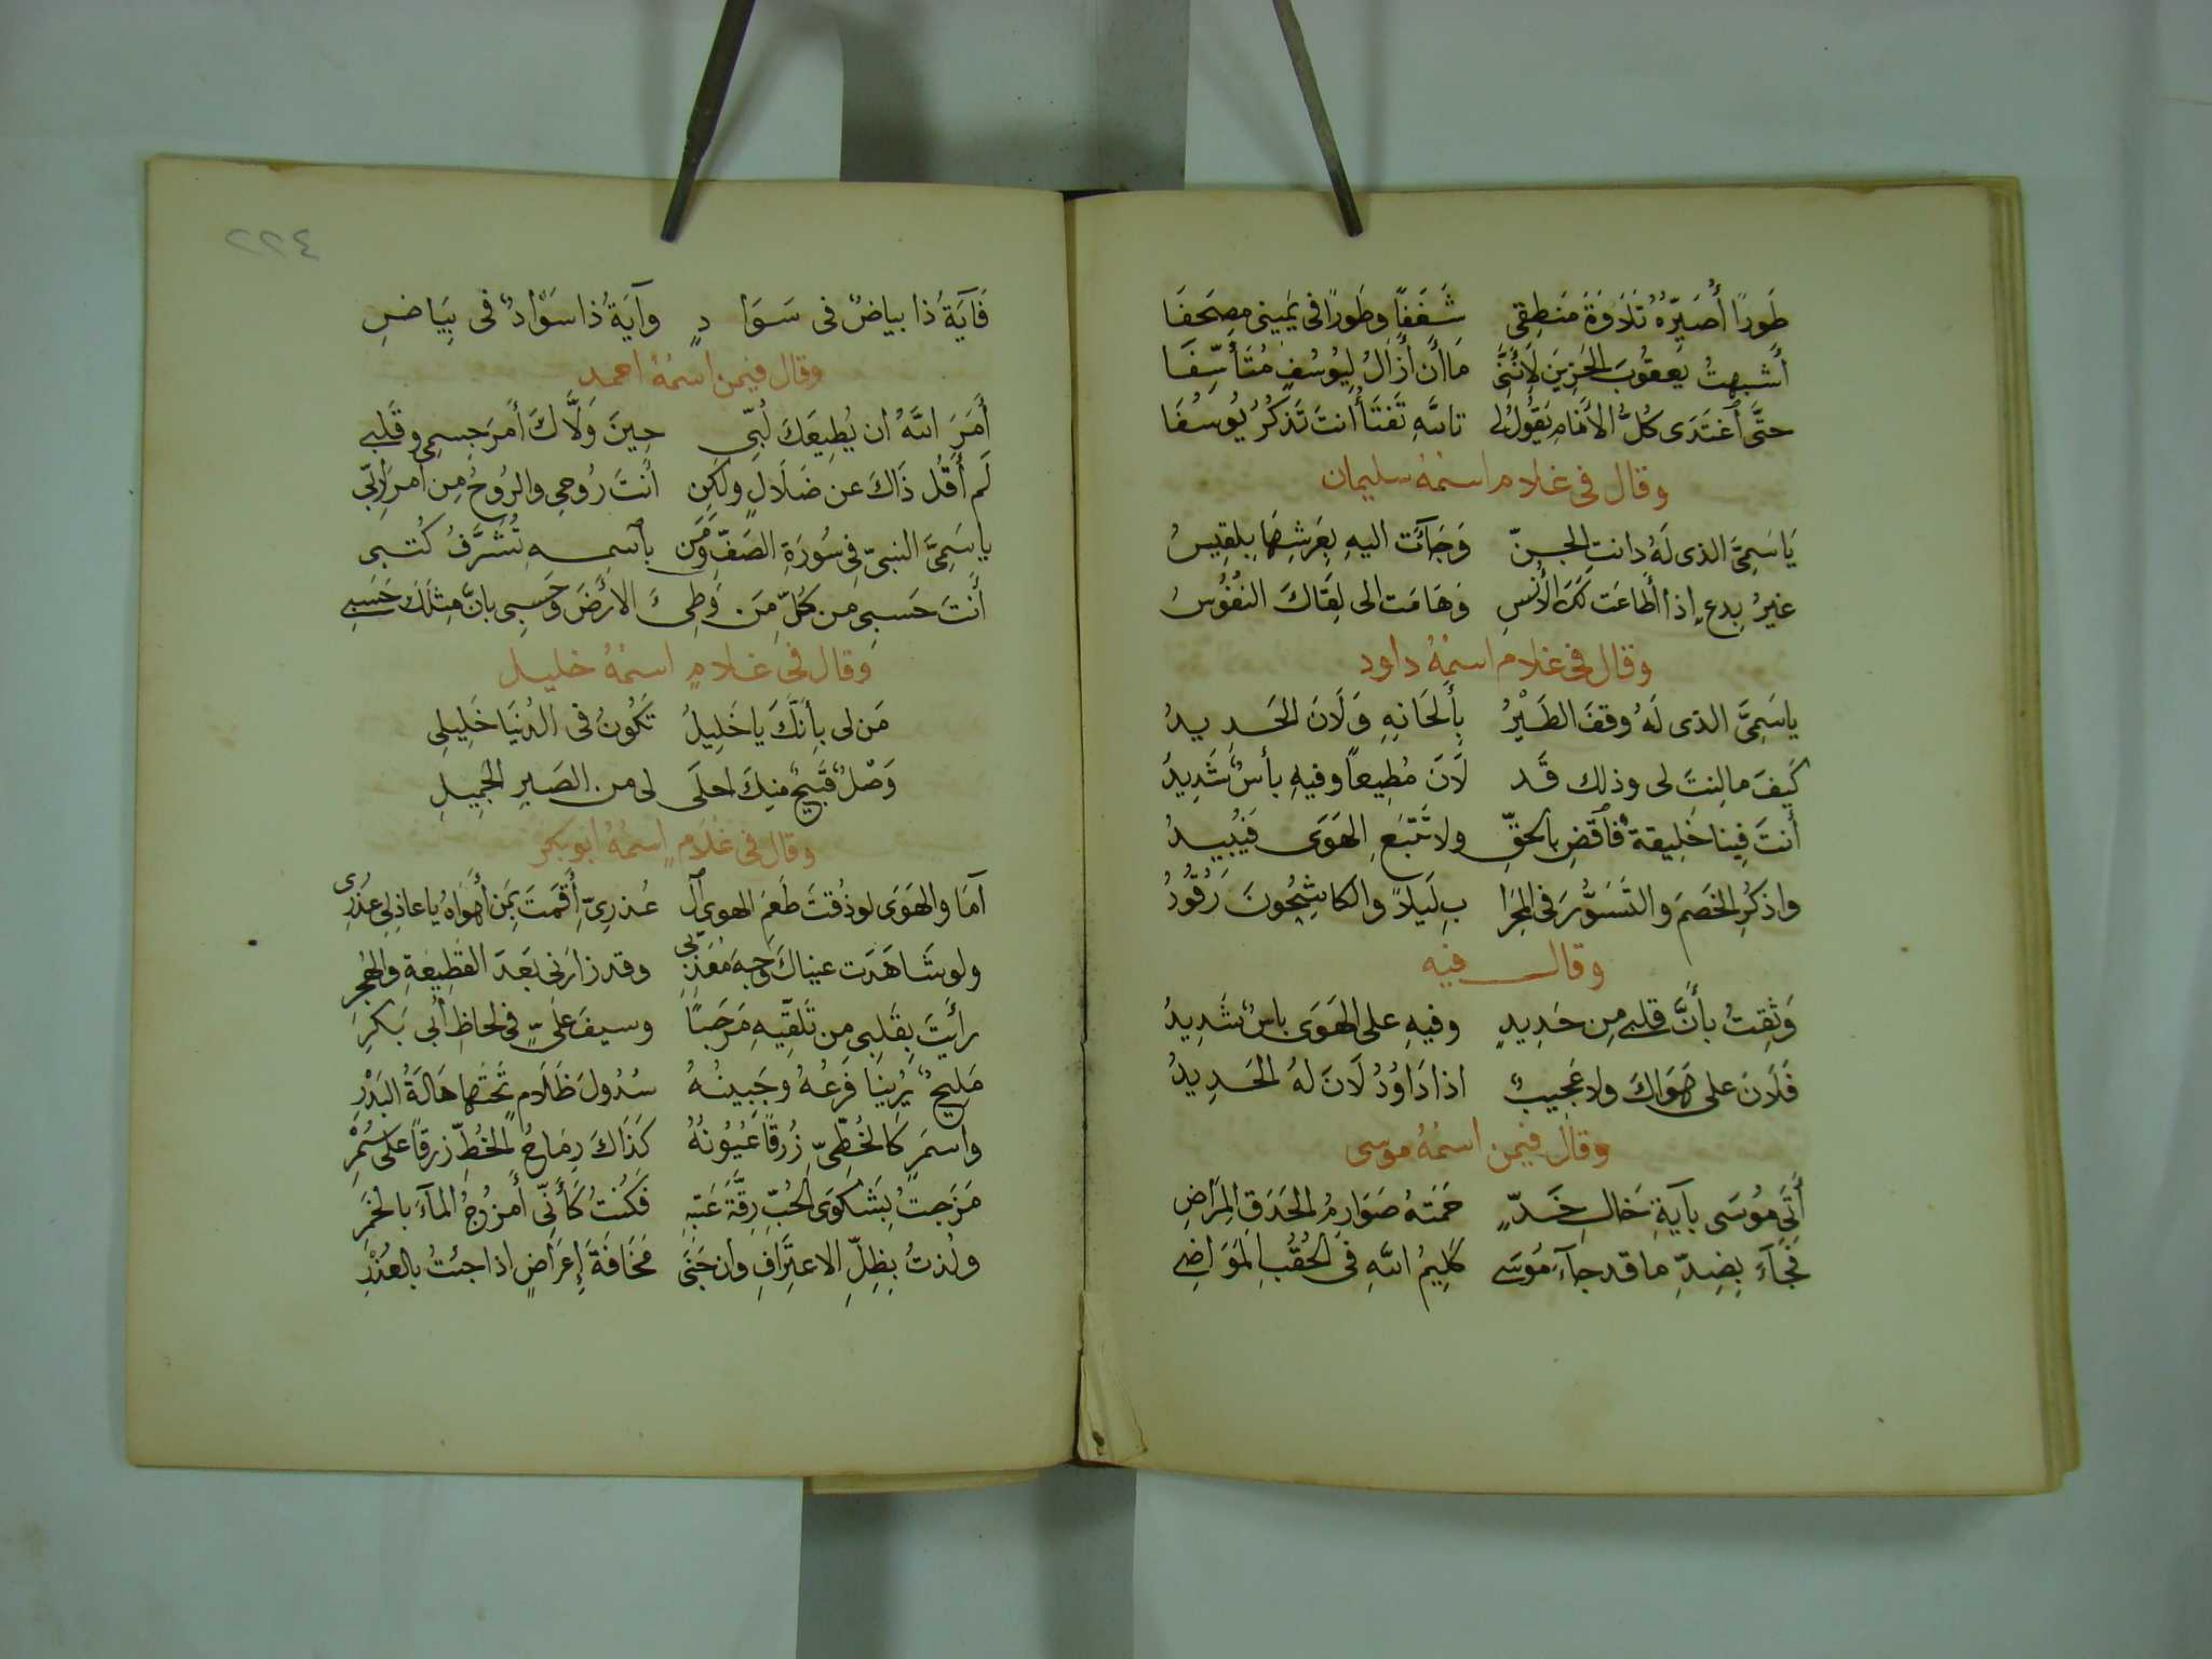 طَورًا أُصَيِّرُهُ تَلَاوَةَ مَنطِقِى شَغَفًا وطَورًا فى يَمِينى مِصحَفَا
أَشبهتُ يَعقُوبَ الحَزِينَ لِأَنَّنِى مَا أن أَزَالُ لِيُوسُفٍ مُتَأَسِّفَا
حتَّى اَغتَدَى كُلُّ الأَنَامِ يَقُولُ لِى تاللهِ تَفتَأُ أنتَ تَذكُرُ يُوسُفَا
وقال فى غلام اسمُهُ سليمان
يَا سَمِىَّ الذى لَهُ دانتِ الجِنّ وَجَآئَت اليهِ بِعَرشِهَا بِلقِيسُ
غيرُ بِدعٍ إذا أطَاعَت لكَ الأُنسِ وَهَامَت الى لِقَاكَ النُفُوسُ
وقال فى غلام اسمُهُ داود
ياسَمِىَّ الذى لَهُ وقفَ الطَيْرُ بِأَلحَانِهِ وَلَانَ الحَديدُ
كَيفَ مالِنتَ لى وذلك قَد لَانَ مُطِيعًا وفيهِ بأسٌ شَدِيدُ
أنتَ فِينا خَلِيقةٌ فاَقضِ بالحقِّ ولا تَتّبَعِ الهَوَى فَيُبِيدُ
واذكُرِ الخَصمَ والتَسَوُّرَ فى المِحرَا بِ لَيلًا والكاشِحُونَ رَقُودُ
وقال فيه
وَثِقتُ بأَنَّ قلبى مِن حَدِيدٍ وفيهِ على الهَوَى باسٌ شَدِيدُ
فَلَانَ على هَوَاكَ ولا عَجيبٌ اذا دَاوُدُ لَانَ لهُ الحَدِيدُ
وقال فيمن اسمُهُ موسى
أَتَى مُوسَى بآيَةِ خَالِ خَدٍّ حَمَتهُ صَوَارِمُ الحَدَقِ المِرَاضِ
فجَآءَ بِضِدِّ ما قد جآءَ مُوسَى كَلِيمُ اللهِ فى الحُقُبِ المَوَاضِى
٢٢٤
فَآيَةُ ذا بياضٌ فى سَوَادٍ وآيَةُ ذا سَوَادٌ فى بِيَاضِ
وقال فيمن اسمُهُ احمد
أَمَرَ اللهُ ان يُطِيعَكَ لُبِّى حِينَ وَلَّاكَ أَمرَ جِسمِى وقَلبى
لَم أَقُل ذَاكَ عن ضَلَالٍ ولَكِن أنتَ رُوحِى والرُوحُ مِن أمرِ رَبِّى
ياسَمِىَّ النبىِّ فِى سُورَةِ الصَفِّ وَمَن بأسمِهِ تُشَرَّفُ كُتبى
أَنتَ حَسبِى من كُلِّ مَن وَطِئَ الارضَ وَحَسبِى بانَّ مِثلَكَ حَسَبى
وقال فى غلامٍ اسمُهُ خليل
مَن لى بِأَنَّكَ يا خَلِيلُ تَكُونُ فى الدُنيَا خَلِيلِى
وَصْلٌ قَبِيحٌ منِكَ احلَى لى من الصَبرِ الجَمِيلِ
وقال فى غلَامٍ اسمُهُ أبو بكر
آمَا والهَوَى لو ذُقتَ طَعمَ الهوى آل عُذرِىّ أَقَمتَ بِمَن أهوَاهُ يا عاذِلى عذرِى
ولو شَاهَدَت عيناكَ وَجهَ مُعَذِّبى وقد زارَنى بَعدَ القَطِيعَةِ والهَجرِ
رأَيتَ بِقَلِبى مِن تَلَقِّيهِ مَرحَبًا وسيفَ عَلىٍّ فى لحاظِ أبى بَكرِ
مَلِيحٌ يُرِينَا فَرعُهُ وجَبِينُهُ سُدُولَ ظَلَامٍ تَحتَها هَالَةُ البَدْرِ
واسمَرٍ كالخَطِّىِّ زُرقًا عُيُونُهُ كَذَاكَ رِمَاحُ الخُطِّ زرقًا على سُمْرِ
مَزَجتُ بِشَكوَى الحُبِّ رِقَّةَ عَتبِهِ فَكُنتُ كَأَنِّى أَمزُجُ المآءَ بالخَمرِ
ولُذتُ بِظِلِّ الاعتِرَافِ وان جَنَى مَخَافَةَ إِعرَاضٍ اذا جئتُ بالعُذْرِ